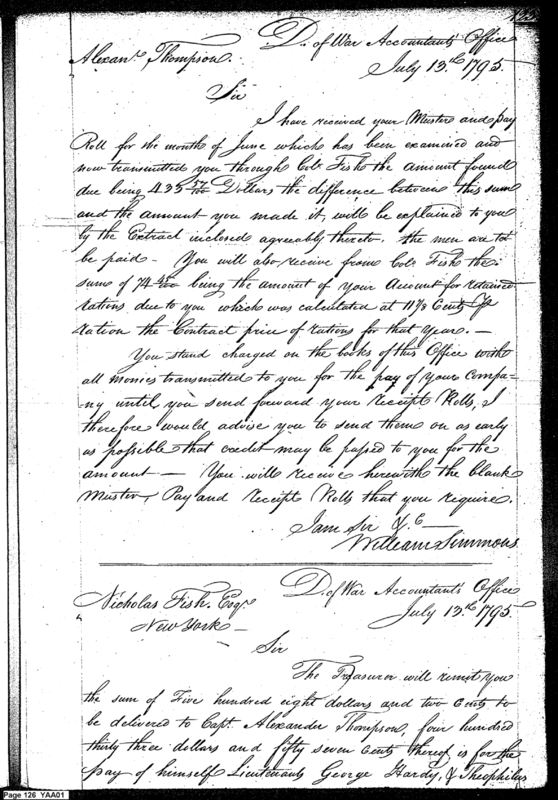 D. of War Accountants Office
Alexanr. Thompson. July 13.th 1795.
Sir
I have received your Muster and Pay
Roll for the month of June which has been examined and
now transmitted you through Colo. Fish the amount found
due being 433 57/100 Dollars the difference between this sum
and the amount you made it, will be explained to you
by the Extract inclosed agreeably thereto. the men are to
be paid - You will also receive from Colo. Fish the
sums of 74 45/100 being the amount of your Account for retained
rations due to you which was calculated at 11 7/8 Cents
ration the Contract price of rations for that Year. —
You stand charged on the books of this Office with
all monies transmitted to you for the pay of your Compa-
ny until, you send forward your receipt Rolls, I
therefore would advise you to send them on as early
as possible that credit may be passed to you for the
amount — You will receive herewith the blank
Muster, Pay and receipt Rolls that you require.
I am Sir &c —
William Simmons.
D. of War Accountant's Office
Nicholas Fish. Esqr. July 13.th 1795.
New York —
Sir
The Treasurer will remit you
the sum of Five hundred eight dollars and two Cents to
be delivered to Capt. Alexander Thompson, four hundred
thirty three dollars and fifty seven Cents thereof is for the
pay of himself Lieutenants George Hardy, & Theophilus
Page 126 YAA01